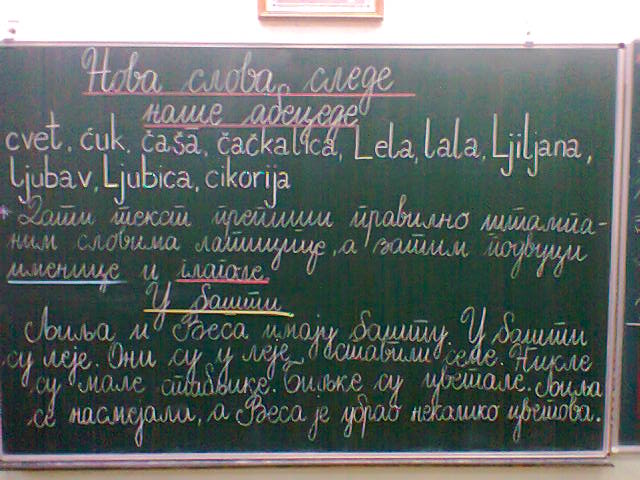 Нова слова, следе
наше абецеде
cvet, ćuk, čaša, čačkalica, Lela, lala, Ljiljana,
ljubav, Ljubica, cikorija
* Дати текст препиши правилно штампа-
ним словима латинице, а затим подвуци
именице и глаголе.
У башти
Љиља и Веса имају башту. У башти
су леје. Они су у леје ставили семе. Никле
су мале стабљике. Биљке су цветале. Љиља
се насмејали, а Веса је убрао неколико цветова.